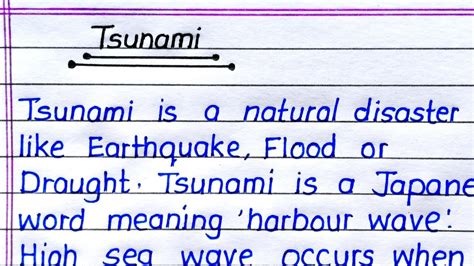 Tsunami
Tsunami is a natural disaster
like Earthquake, Flood or
Draught. Tsunami is a Japane
word meaning 'harbour wave'.
High sea wave occurs when